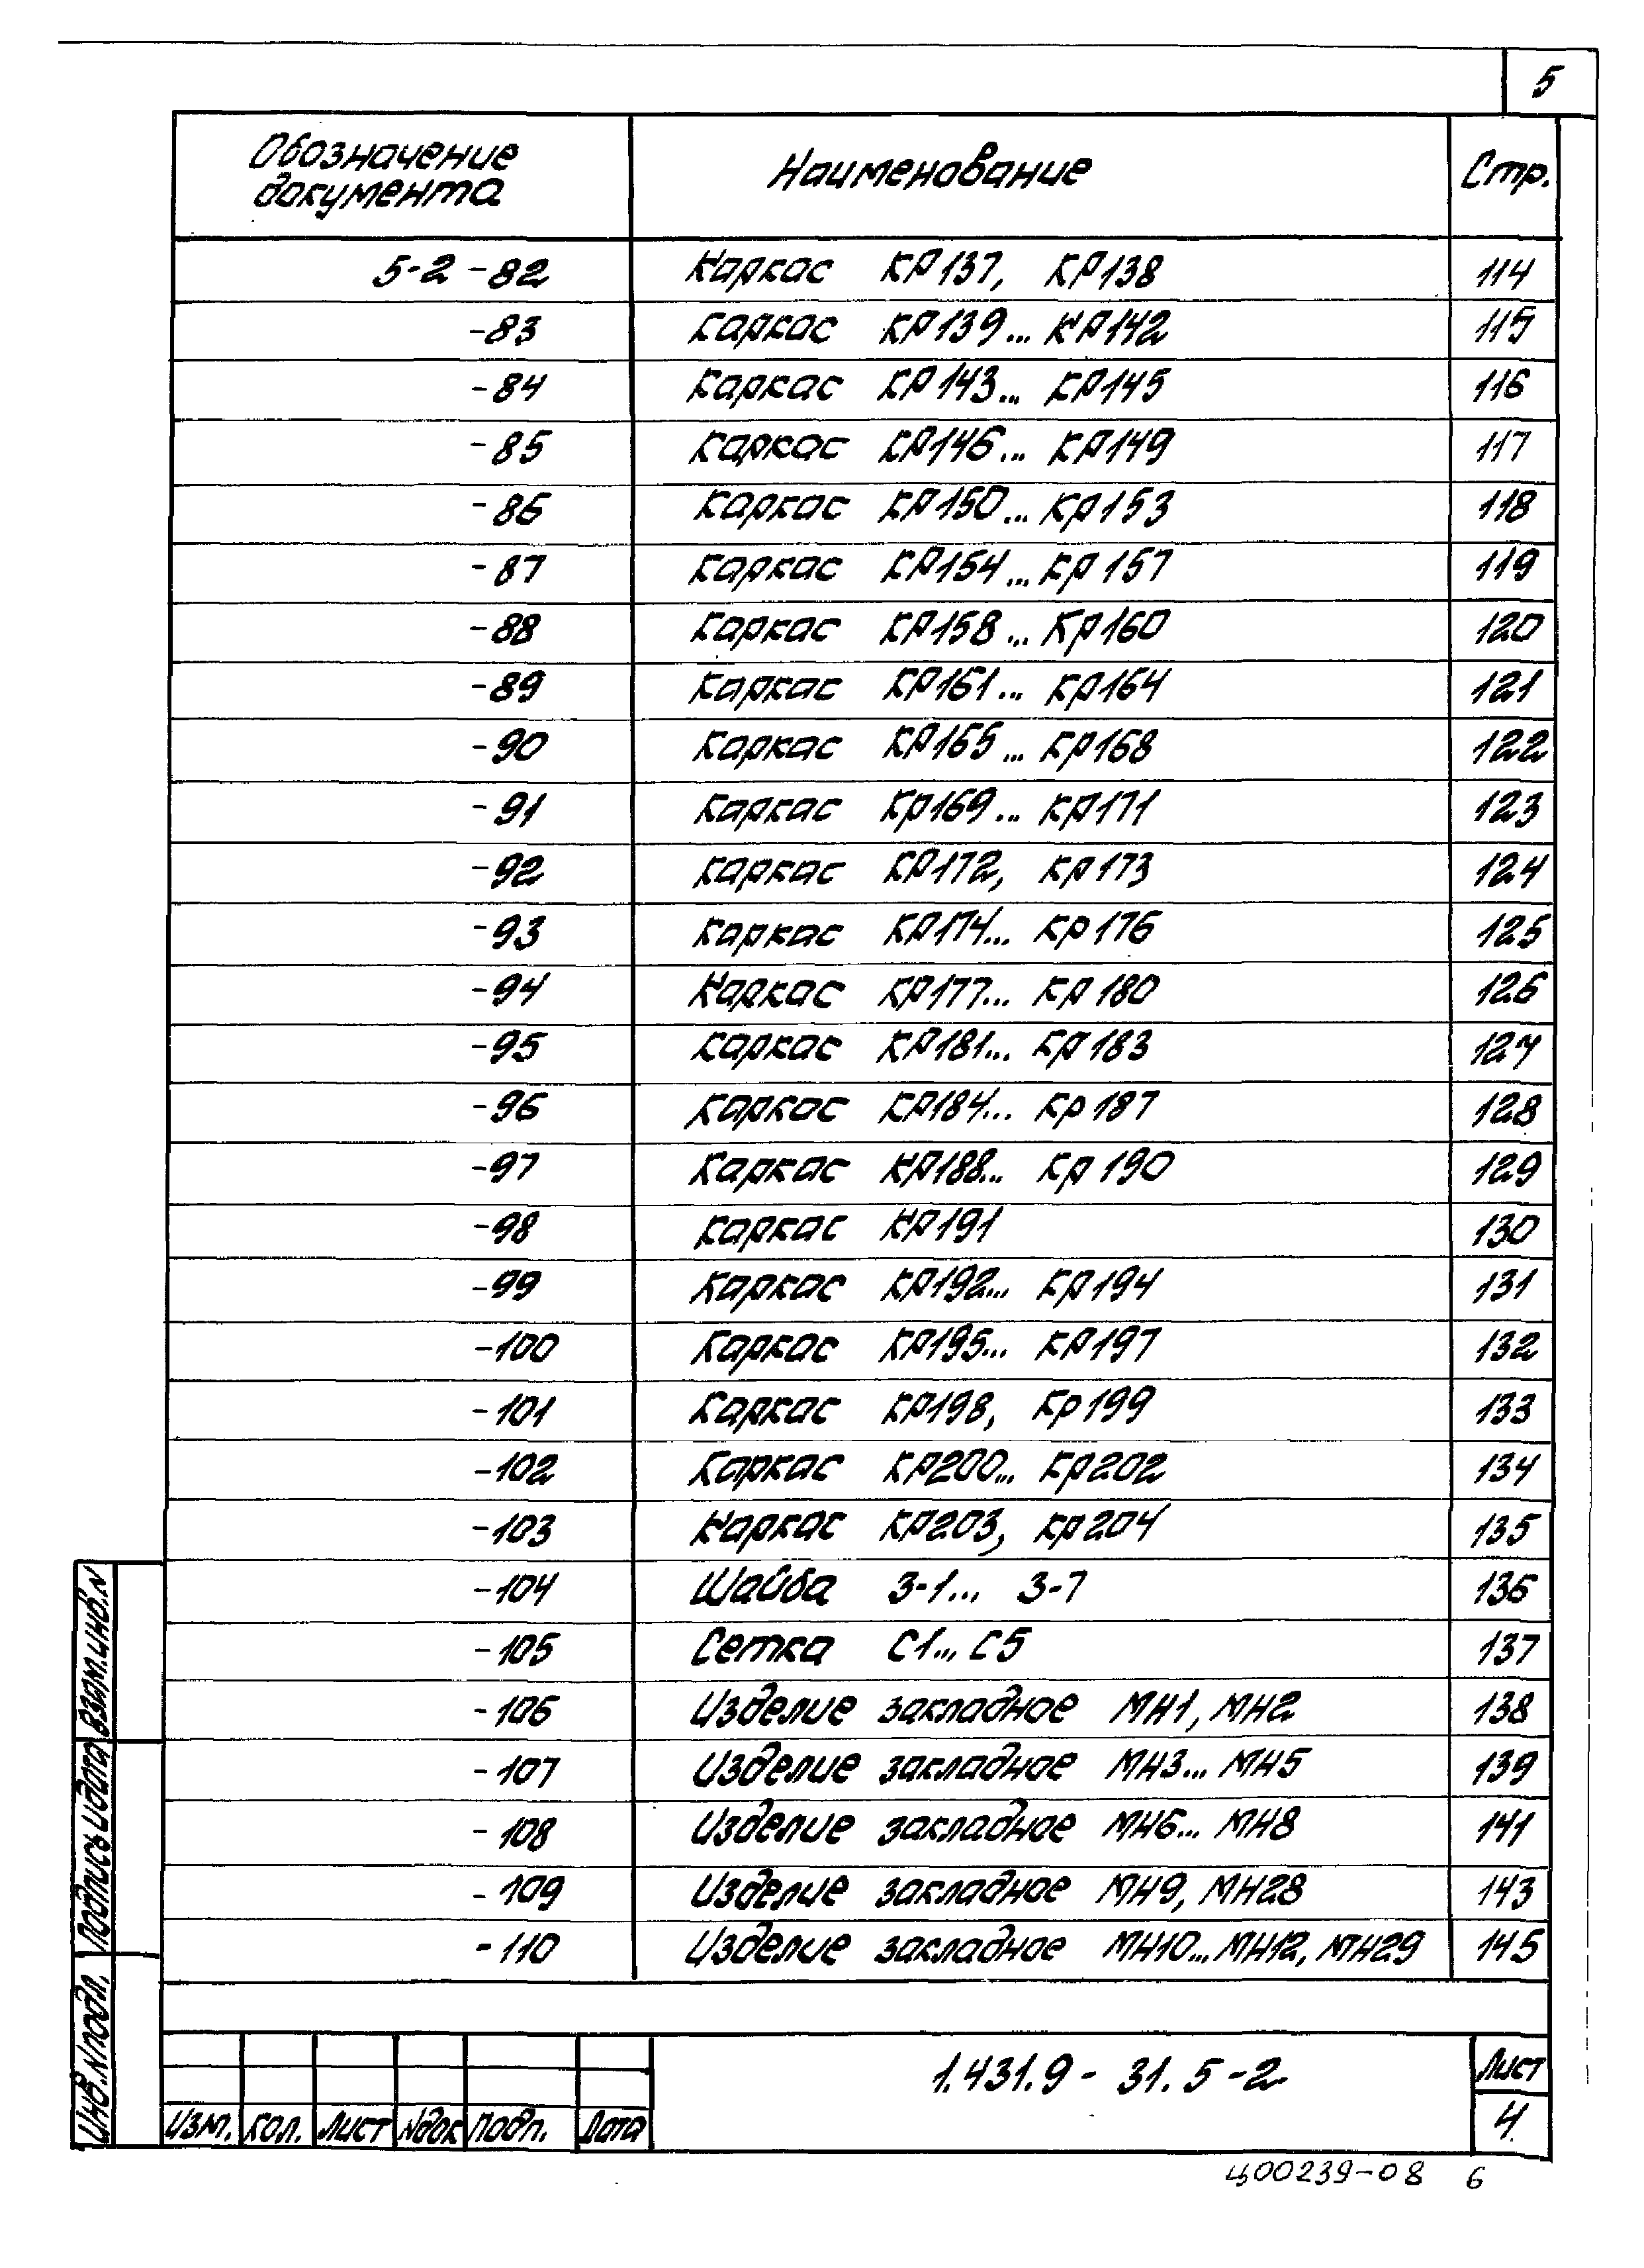 5
Обозначение документа Наименование Стр.
5-2 -82 Каркас КР137, КР138 114
-83 Каркас КР139... КР142 115
-84 Каркас КР143... КР145 116
-85 Каркас КР146... КР149 117
-86 Каркас КР150... КР153 118
-87 Каркас КР154... КР157 119
-88 Каркас КР158... КР160 120
-89 Каркас КР161... КР164 121
-90 Каркас КР165... КР168 122
-91 Каркас КР169... КР171 123
-92 Каркас КР172, КР173 124
-93 Каркас КР174... КР176 125
-94 Каркас КР177... КР180 126
-95 Каркас КР181... КР183 127
-96 Каркас КР184... КР187 128
-97 Каркас КР188... КР190 129
-98 Каркас КР191 130
-99 Каркас КР192... КР194 131
-100 Каркас КР195... КР197 132
-101 Каркас КР198, КР199 133
-102 Каркас КР200... КР202 134
-103 Каркас КР203, КР204 135
-104 Шайба З-1... З-7 136
-105 Сетка С1... С5 137
-106 Изделие закладное МН1, МН2 138
-107 Изделие закладное МН3... МН5 139
-108 Изделие закладное МН6... МН8 141
-109 Изделие закладное МН9, МН28 143
-110 Изделие закладное МН10... МН12, МН29 145
Взам.инв.N
Подпись и дата
Инв.N подл.
1.431.9 - 31.5-2
Лист
4
Изм. Кол. Лист Nдок Подп. Дата
Ц00239-08 6